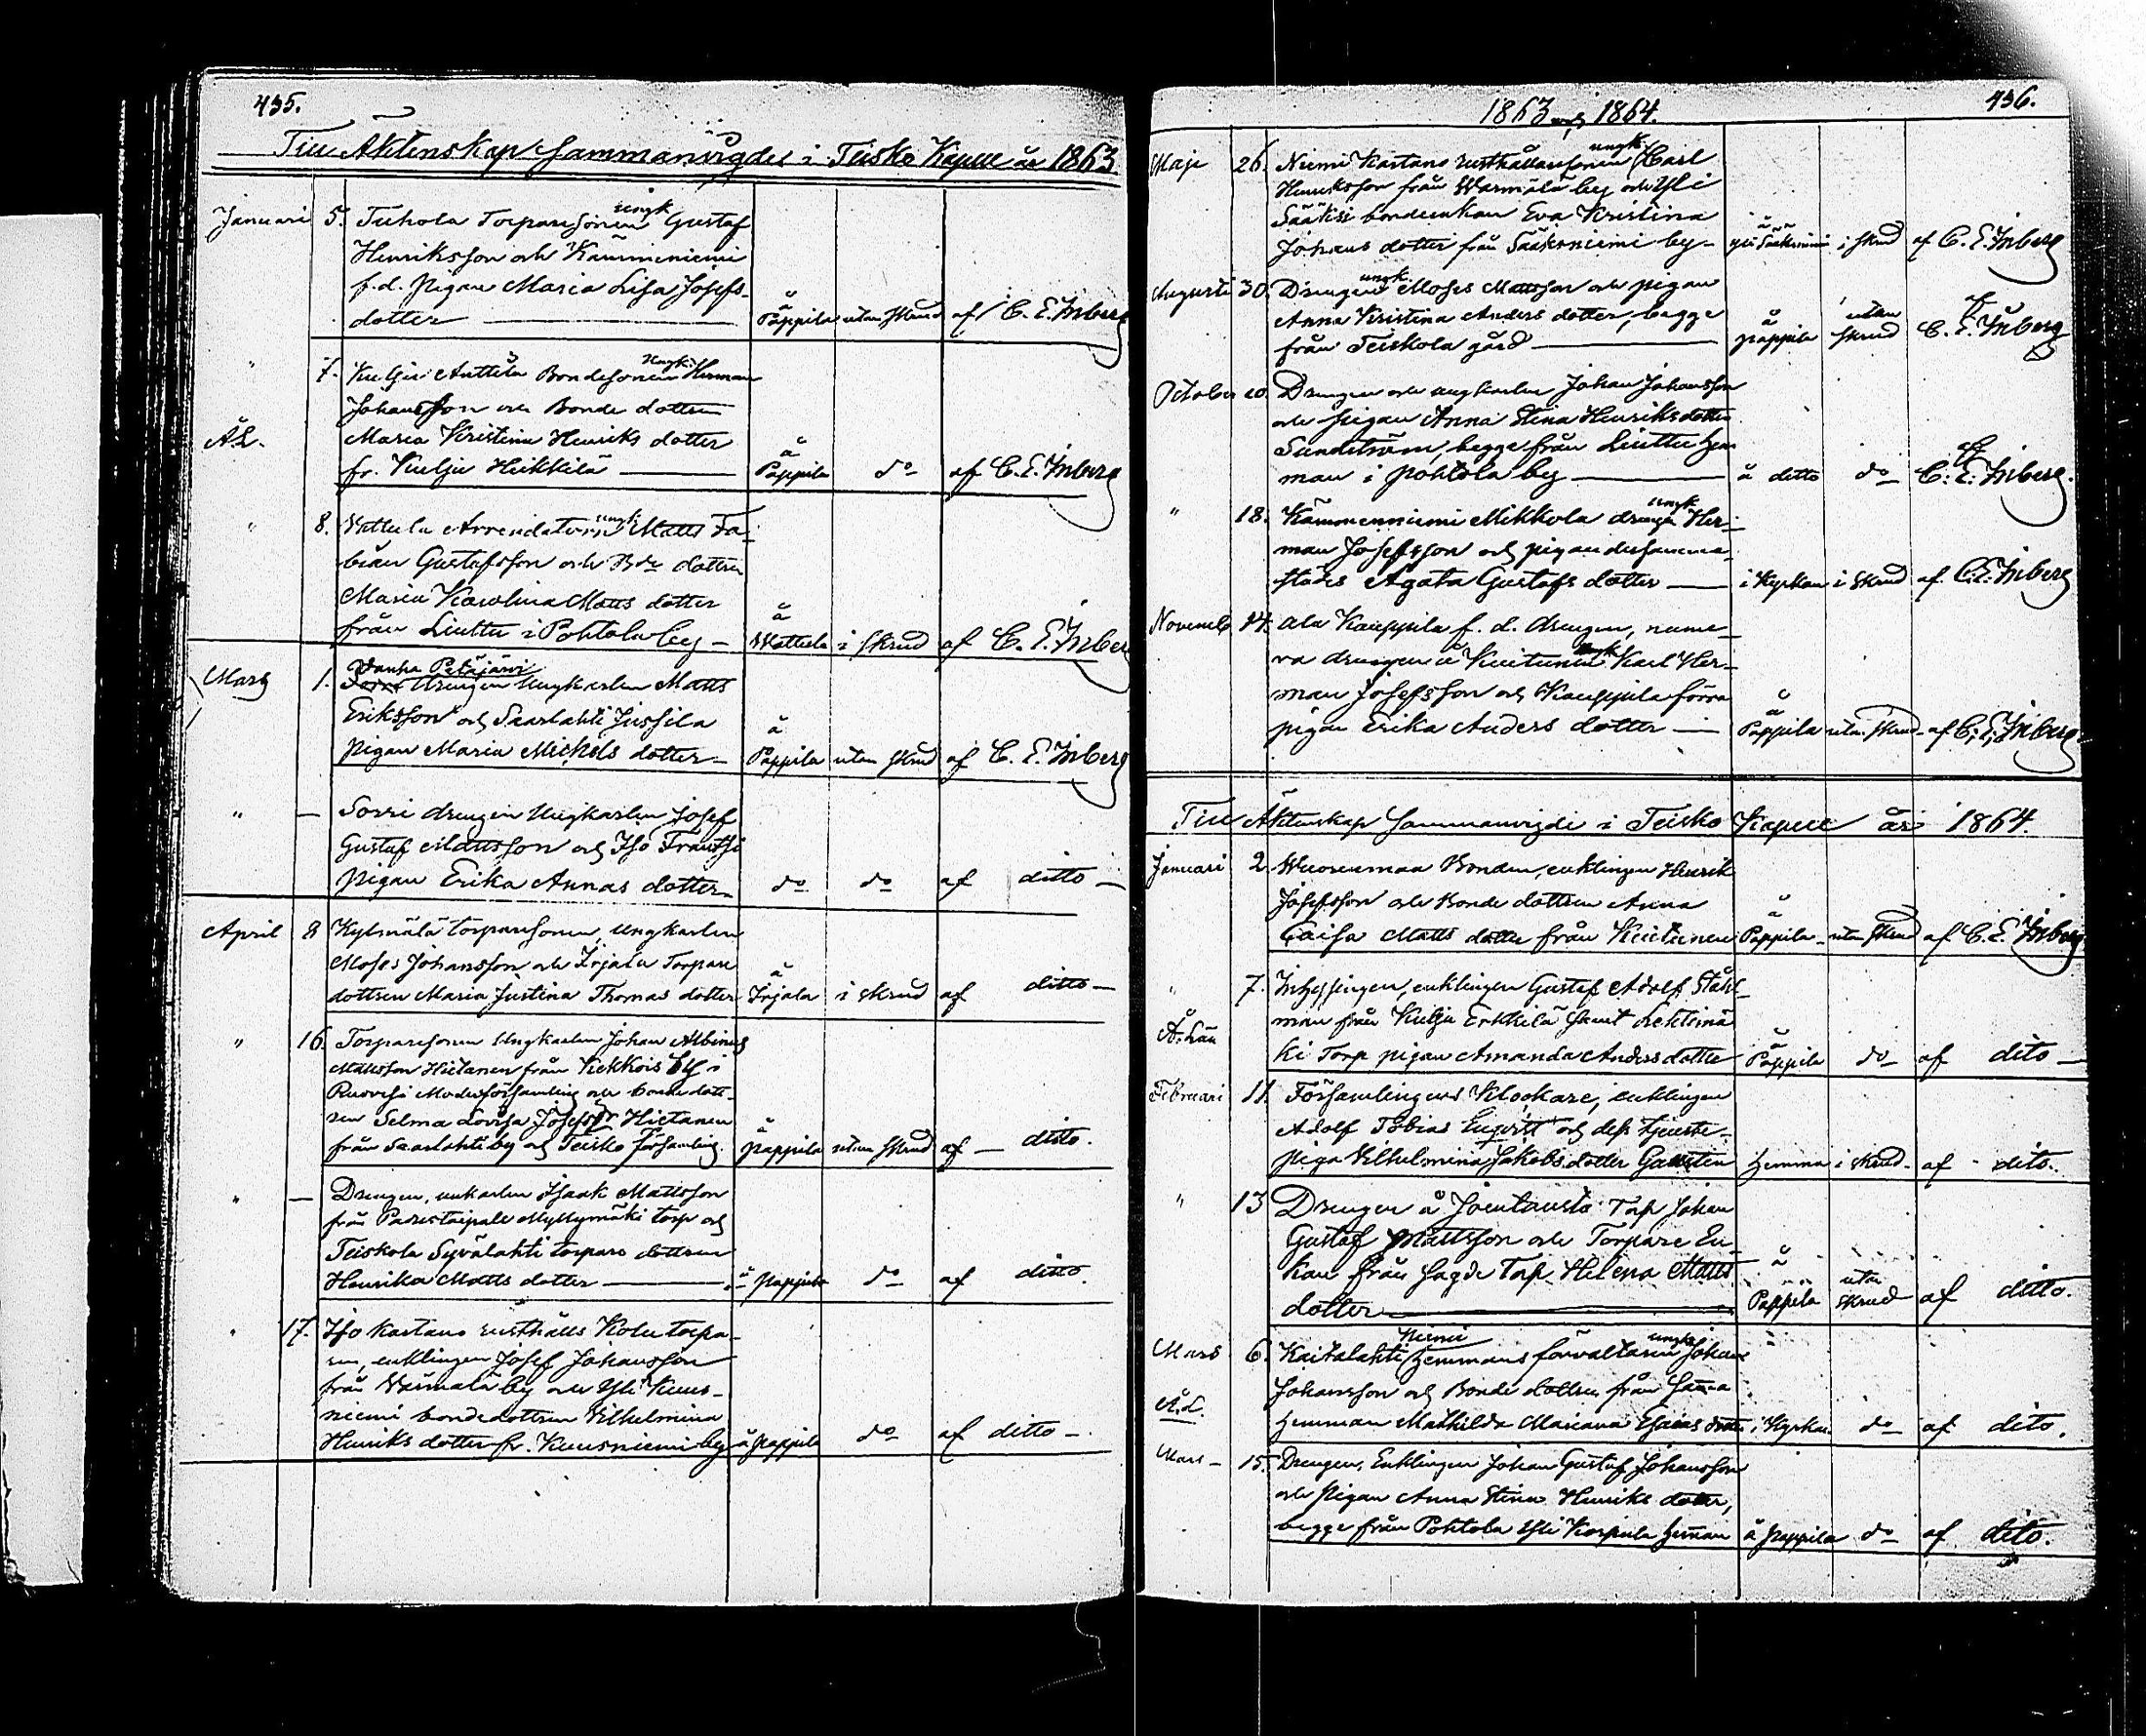 435.
Till Äktenskap Sammanvigdes i Teisko Kapell år 1863.
Januari 5. Tuhola Torparesonen ungk Gustaf
Henriksson och Kämmenniemi
f.d. pigan Maria Lisa Josefs-
dotter — å Pappila utan skrud af C. E. Inberg
" 7. Kulju Anttila Bondesonen Ungk: Herman
Johansson och Bonde dottren
A.L. Maria Kristina Henriks dotter
fr. Kulju Heikkilä — å Pappila do af C. E. Inberg
" 8. Wattula Arrendatorn, ungk Matts Fa-
bian Gustafsson och Bde dottren
Maria Karolina Matts dotter
från Liuttu i Pohtola by — å Wattula i skrud af C. E. Inberg
Mars 1. Vanha Petäjärvi
drengen Ungkarlen Matts
Eriksson och Saarlahti Jussila
pigan Maria Michels dotter — å Pappila utan skrud af C. E. Inberg
" — Sorri drengen Ungkarlen Josef
Gustaf Mattsson och Iso Frantsi
pigan Erika Annas dotter — do do af ditto —
April 8 Kylmälä torparesonen, Ungkarlen
Moses Johansson och Irjala Torpare
dottren Maria Justina Thomas dotter å Irjala i skrud af ditto —
" 16. Torparesonen Ungkarlen Johan Albinus
Mattsson Hietanen från Kekkois by i
Ruovesi Moderförsamling och bondedott-
ren Selma Lovisa Josefs dr Hietanen
från Saarlahti by och Teisko församling. å pappila utan skrud af — ditto.
" — Drengen, unkarlen Isaak Mattsson
från Padustaipale Myllymäki torp och
Teiskola Syvälahti torpare dottren
Henrika Matts dotter — å pappila do af ditto.
" 17. Iso Kartano rusthålls Kolu torpa-
ren, enklingen Josef Johansson
från Värmälä by och Yli Kuus-
niemi bondedottren Vilhelmina
Henriks dotter fr. Kuusniemi by å pappila do af ditto —
436.
1863 och 1864.
Maji 26. Niemi Kartano rusthållaresonen ungk Carl
Henriksson från Warmälä by och Yli
Sääksi bondeenkan Eva Kristina
Johans dotter från Sääksniemi by — å Yli Sääksniemi i skrud af C. E. Inberg
Augusti 30. Drengen ungk. Moses Mattsson och pigan
Anna Kristina Anders dotter, begge
från Teiskola gård — å pappila utan skrud af C. E. Inberg
October 10. Drengen och ungkarlen Johan Johansson
och pigan Anna Stina Henriksdotter
Sundström, begge från Liuttu hem
man i Pohtola by — å ditto do af C. E. Inberg.
" 18. Kämmenniemi Mikkola drengen ungk Her-
man Josefsson och pigan dersamma-
städes Agata Gustafs dotter — i Kyrkan i skrud af C. E. Inberg
Novemb 14. Ala Kauppila f. d. drengen, nume-
ra drengen å Kuitunen ungk Karl Her-
man Josefsson och Kauppila förra
pigan Erika Anders dotter — å Pappila utan skrud af C. E. Inberg.
Till Äktenskap Sammanvigde i Teisko Kapell år 1864.
Januari 2. Wuorenmaa Bonden, enklingen Henrik
Josefsson och Bonde dottren Anna
Caisa Matts dotter från Kuitunen å Pappila utan skrud af C. E. Inberg
" 7. Inhysingen, enklingen Gustaf Adolf Ståhl-
A. Län man från Kulju Erkkilä samt Lehtimä
ki Torp pigan Amanda Anders dotter å Pappila do af dito —
Februari 11. Församlingens Klockare, enklingen
Adolf Tobias Enqvist och dess tjenste-
piga Vilhelmina Jakobs dotter hemma i skrud af dito.
" 13 Drengen å Jountausta Torp Johan
Gustaf Mattsson och Torpare En-
kan från Sagde Torp Helena Matts
dotter — å Pappila utan skrud af ditto.
Mars 6. Kaitalahti Niemi hemmans förvaltaren ungk Johan
Johansson och Bonde dottren från Samma
A.L. hemman Mathilda Mariana Esaias dotter i Kyrkan do af dito.
Mars — 15. Drengen, Enklingen Johan Gustaf Johansson
och pigan Anna Stina Henriks dotter,
begge från Pohtola Yli Korpula heman å pappila do af dito.